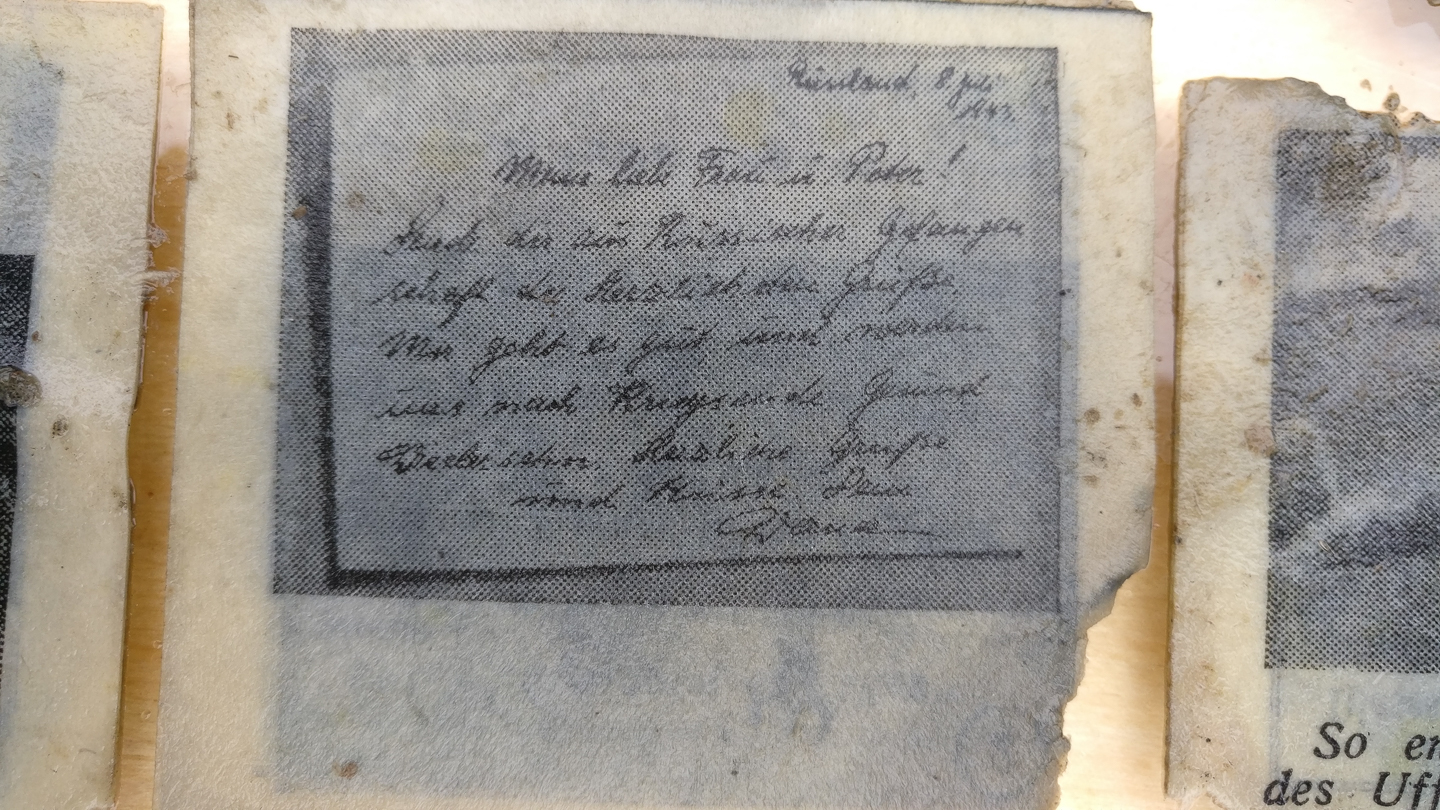 Russland 8 Juli
1942
Meine liebe Frau u Peter!
Sende dir aus Russischer Gefangen
schaft die herzlichsten Grüße
Mir geht es gut und werden
uns nach Kriegsende Gesund
Wiedersehn. Herzliche Grüße
und Küsse Dein
So
des Uff